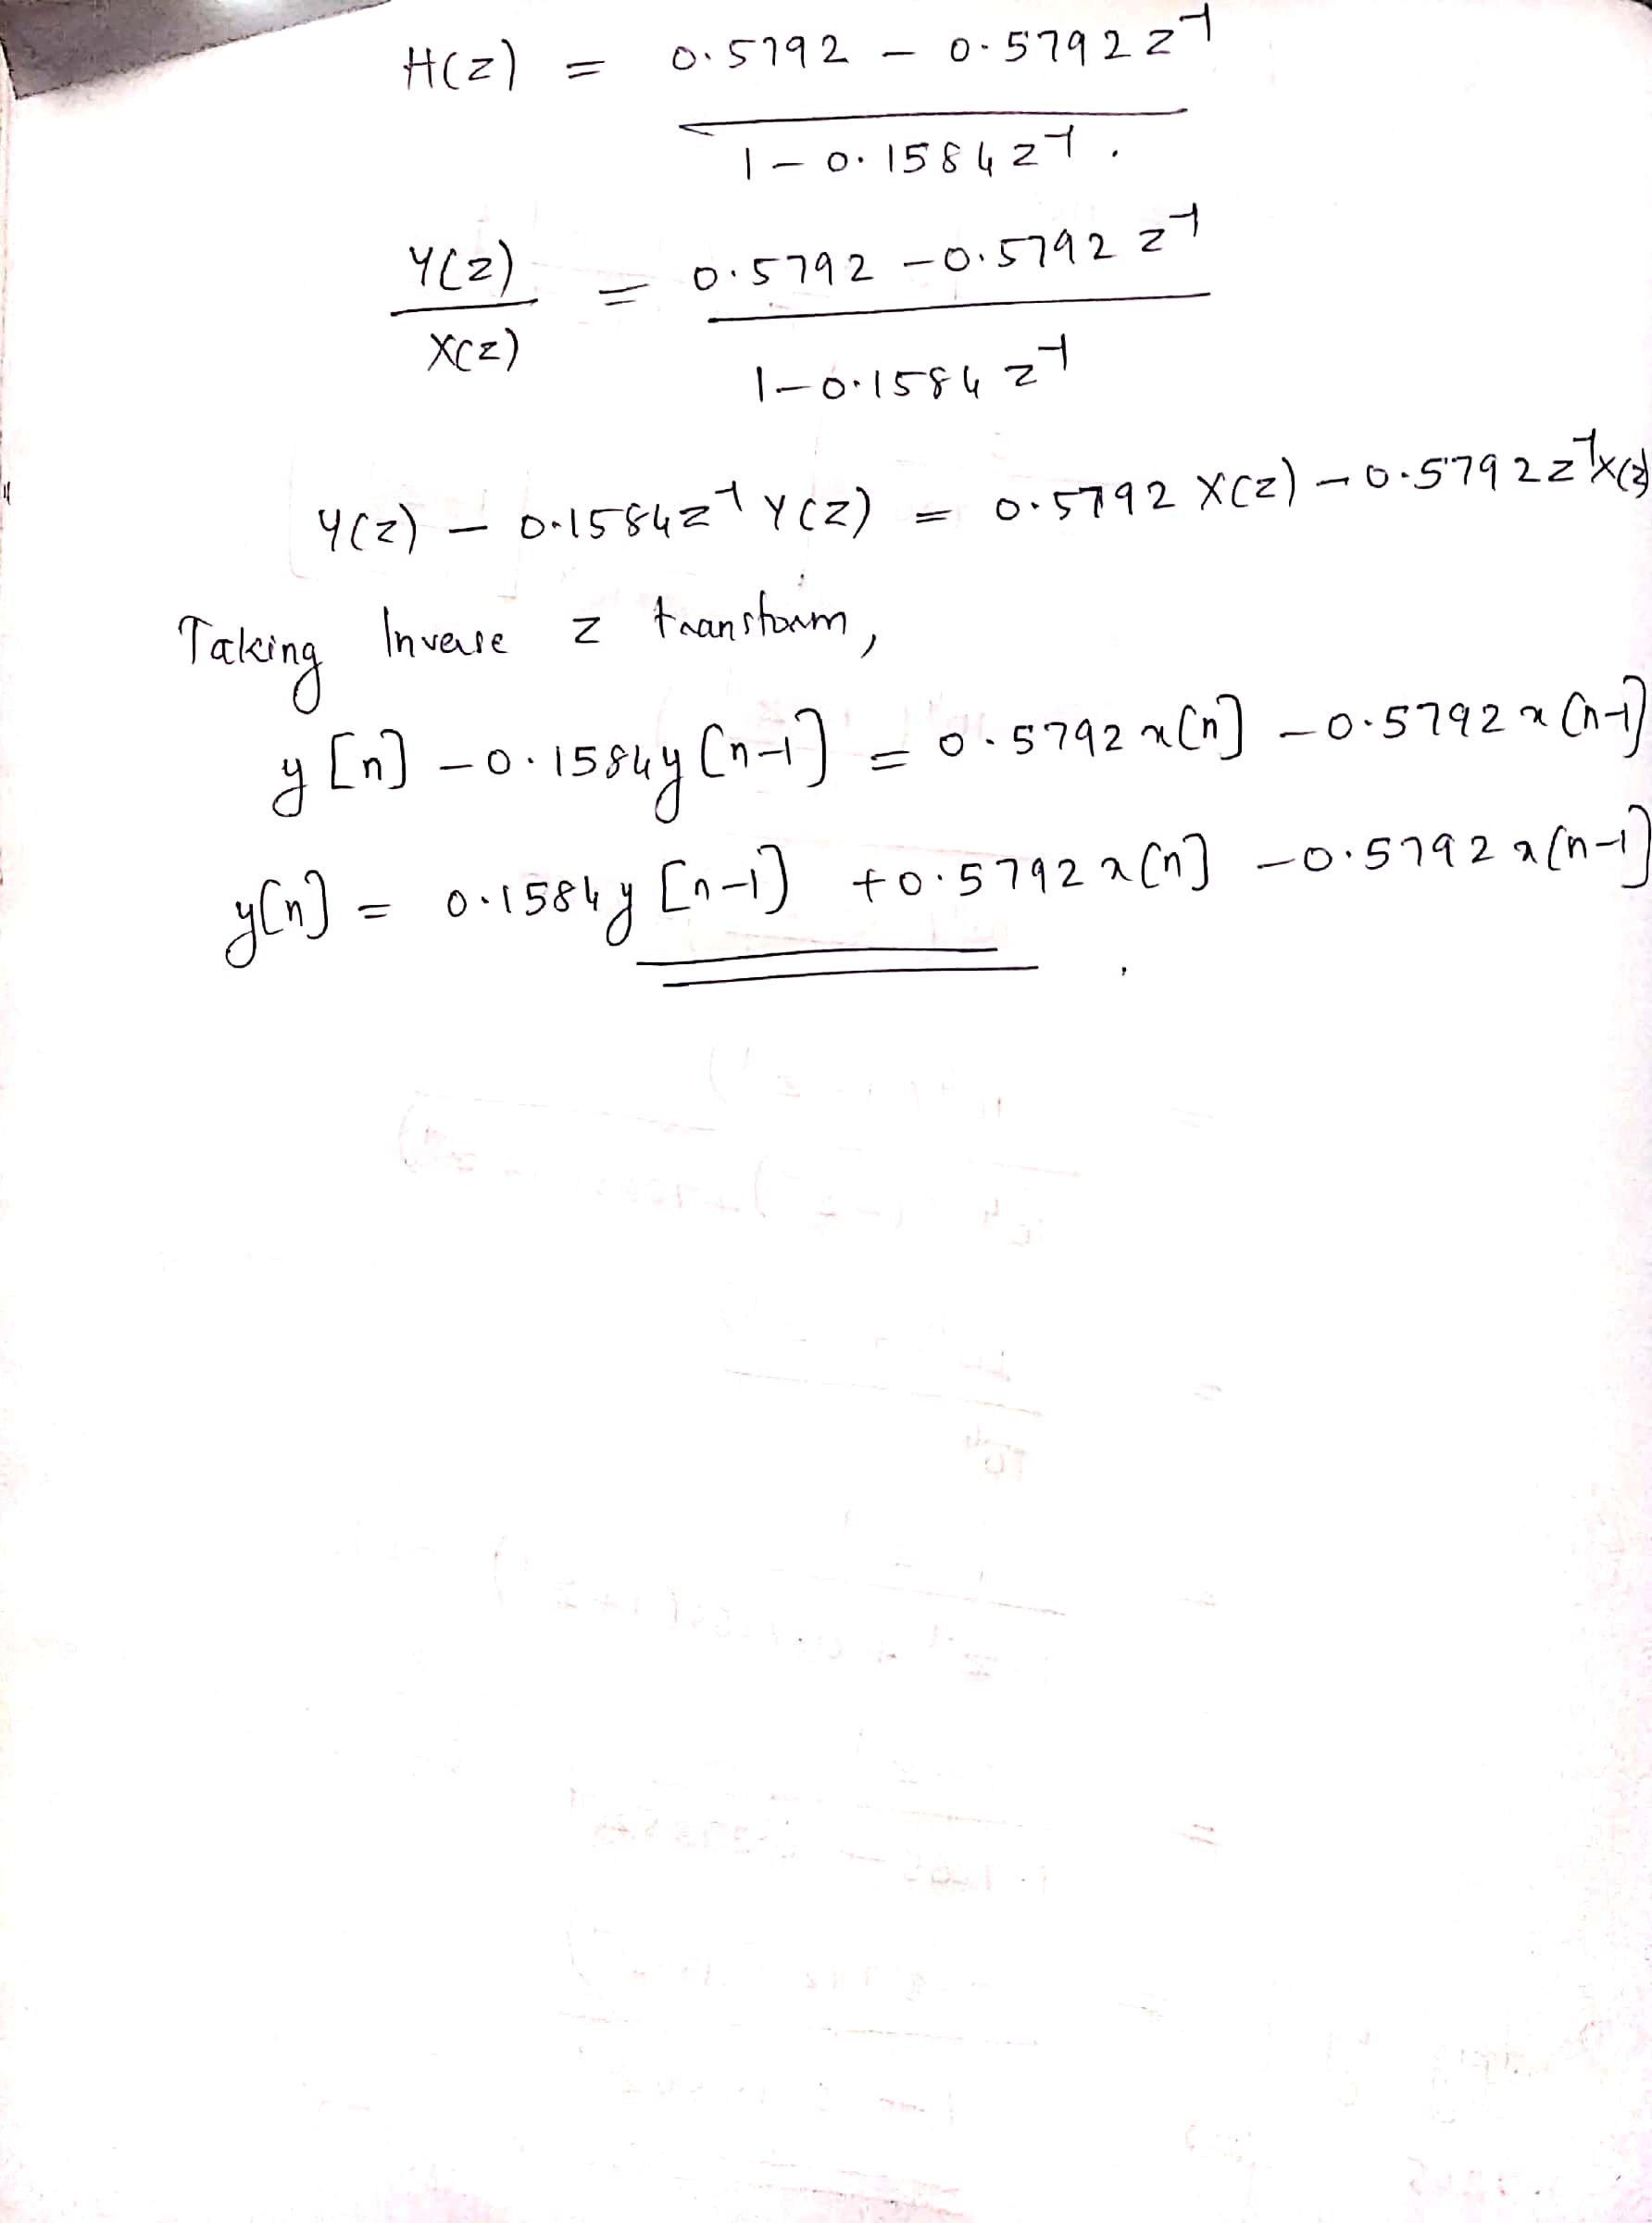 H(z) = 0.5792 - 0.5792 z⁻¹
1 - 0.1584 z⁻¹.
Y(z) = 0.5792 - 0.5792 z⁻¹
X(z) 1 - 0.1584 z⁻¹
Y(z) - 0.1584z⁻¹ Y(z) = 0.5792 X(z) - 0.5792 z⁻¹X(z)
Taking Inverse z transform,
y[n] - 0.1584y[n-1] = 0.5792 x[n] - 0.5792 x[n-1]
y[n] = 0.1584y[n-1] + 0.5792 x[n] - 0.5792 x[n-1]